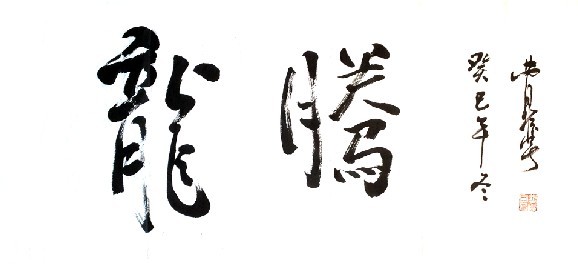 龍騰
癸巳年冬